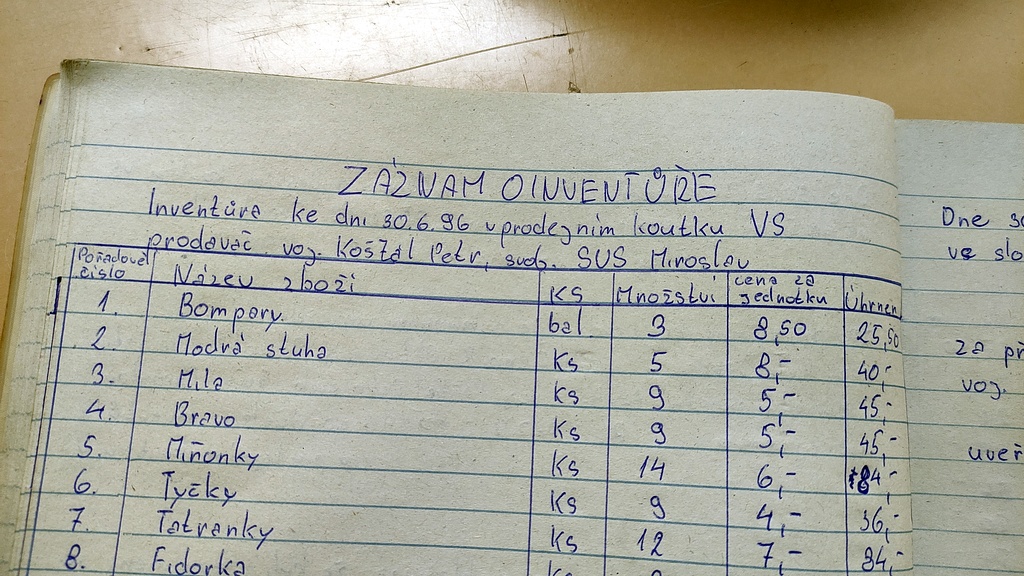 ZÁZNAM O INVENTŮŘE
Inventůra ke dni 30.6.96 v prodejním koutku VS
prodavač voj. Košťál Petr, svob. SUS Miroslav
Pořadové číslo Název zboží KS Množství cena za jednotku Úhrnem
1. Bompary. bal 3 8,50 25,50
2. Modrá stuha Ks 5 8,- 40,-
3. Mila Ks 9 5,- 45,-
4. Bravo Ks 9 5,- 45,-
5. Miňonky Ks 14 6,- 84,-
6. Tyčky Ks 9 4,- 36,-
7. Tatranky Ks 12 7,- 84,-
8. Fidorka
Dne 30
ve slo
za př
voj.
uveř